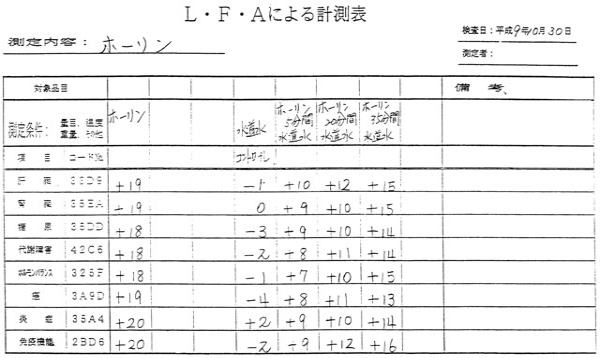 L・F・Aによる計測表
検査日：平成9年10月30日
測定内容： ホーリン
測定者：
対象品目 備 考
測定条件： 量目、温度 重量 その他 ホーリン 水道水 ホーリン 5分間 水道水 ホーリン 20分間 水道水 ホーリン 35分間 水道水
項 目 コード№ コントロール
肝 +19 -1 +10 +12 +15
35EA +19 0 +9 +10 +15
糖 尿 35DD +18 -3 +9 +10 +14
代謝障害 42C6 +18 -2 +8 +11 +14
ホルモンバランス 325F +18 -1 +7 +10 +15
癌 3A9D +19 -4 +8 +11 +13
炎 症 35A4 +20 +2 +9 +10 +14
免疫機能 2BD6 +20 -2 +9 +12 +16